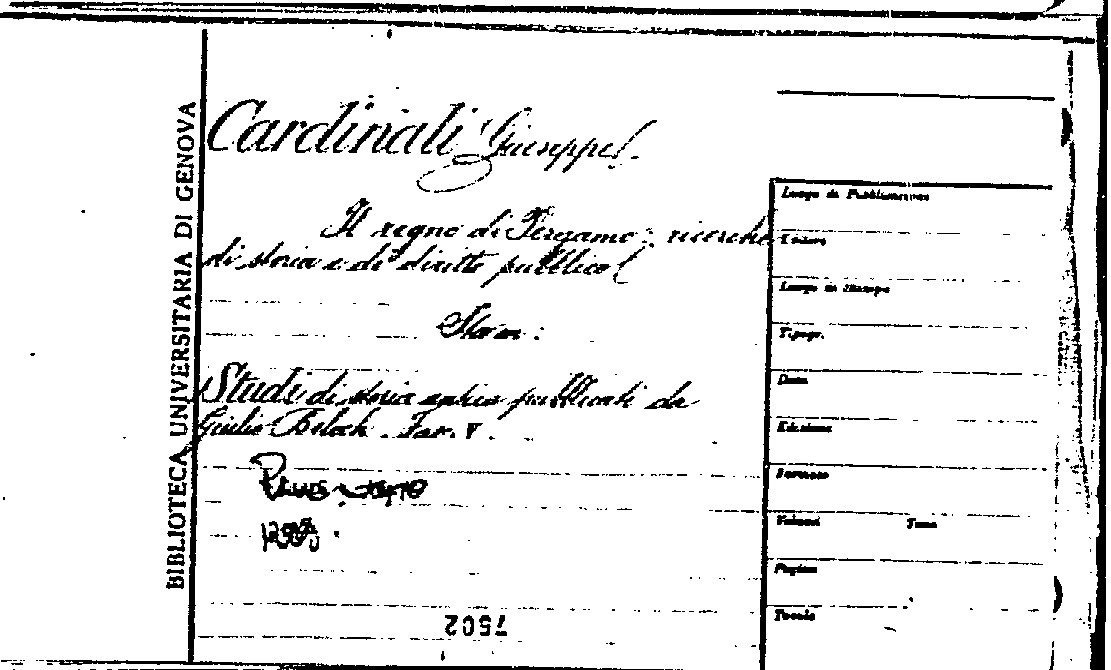 BIBLIOTECA UNIVERSITARIA DI GENOVA
Cardinali Giuseppe.
Il regno di Pergamo: ricerche
di storia e di diritto pubblico
Studi di storia antica pubblicati da
Giulio Beloch. Fasc. V.
7502
Luogo di Pubblicazione
Editore
Luogo di Stampa
Tipogr.
Data
Edizione
Formato
Volumi Tomo
Pagine
Tavole